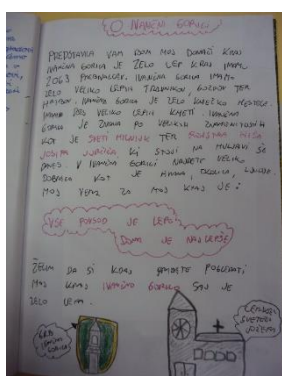 O IVANČNI GORICI
PREDSTAVILA VAM BOM MOJ DOMAČI KRAJ
IVANČNA GORICA JE ZELO LEP KRAJ IMAMO
2063 PREBIVALCEV. IVANČNA GORICA IMAMO
ZELO VELIKO LEPIH TRAVNIKOV, GOZDOV TER
IVANČNA GORICA JE ZELO KMEČKO
IMAMO ZELO VELIKO LEPIH KMETIJ. IVANČNA
GORICA JE ZNANA PO VELIKIH ZNAMENITOSTIH
KOT JE TER ROJSTNA HIŠA
JOSIPA JURČIČA KI STOJI NA MULJAVI ŠE
DANES. V IVANČNI GORICI NAJDETE VELIKO
KOT JE
MOJ ZA MOJ KRAJ JE:
VSE POVSOD JE LEPO,
DOMA JE NAJLEPŠE
ŽELIM DA SI KDAJ PRIDETE POGLEDATI
MOJ KRAJ IVANČNO GORICO SAJ JE
ZELO LEPA.
GRB
IVANČNE
GORICE
CERKEV
SVETEGA
JOŽEFA